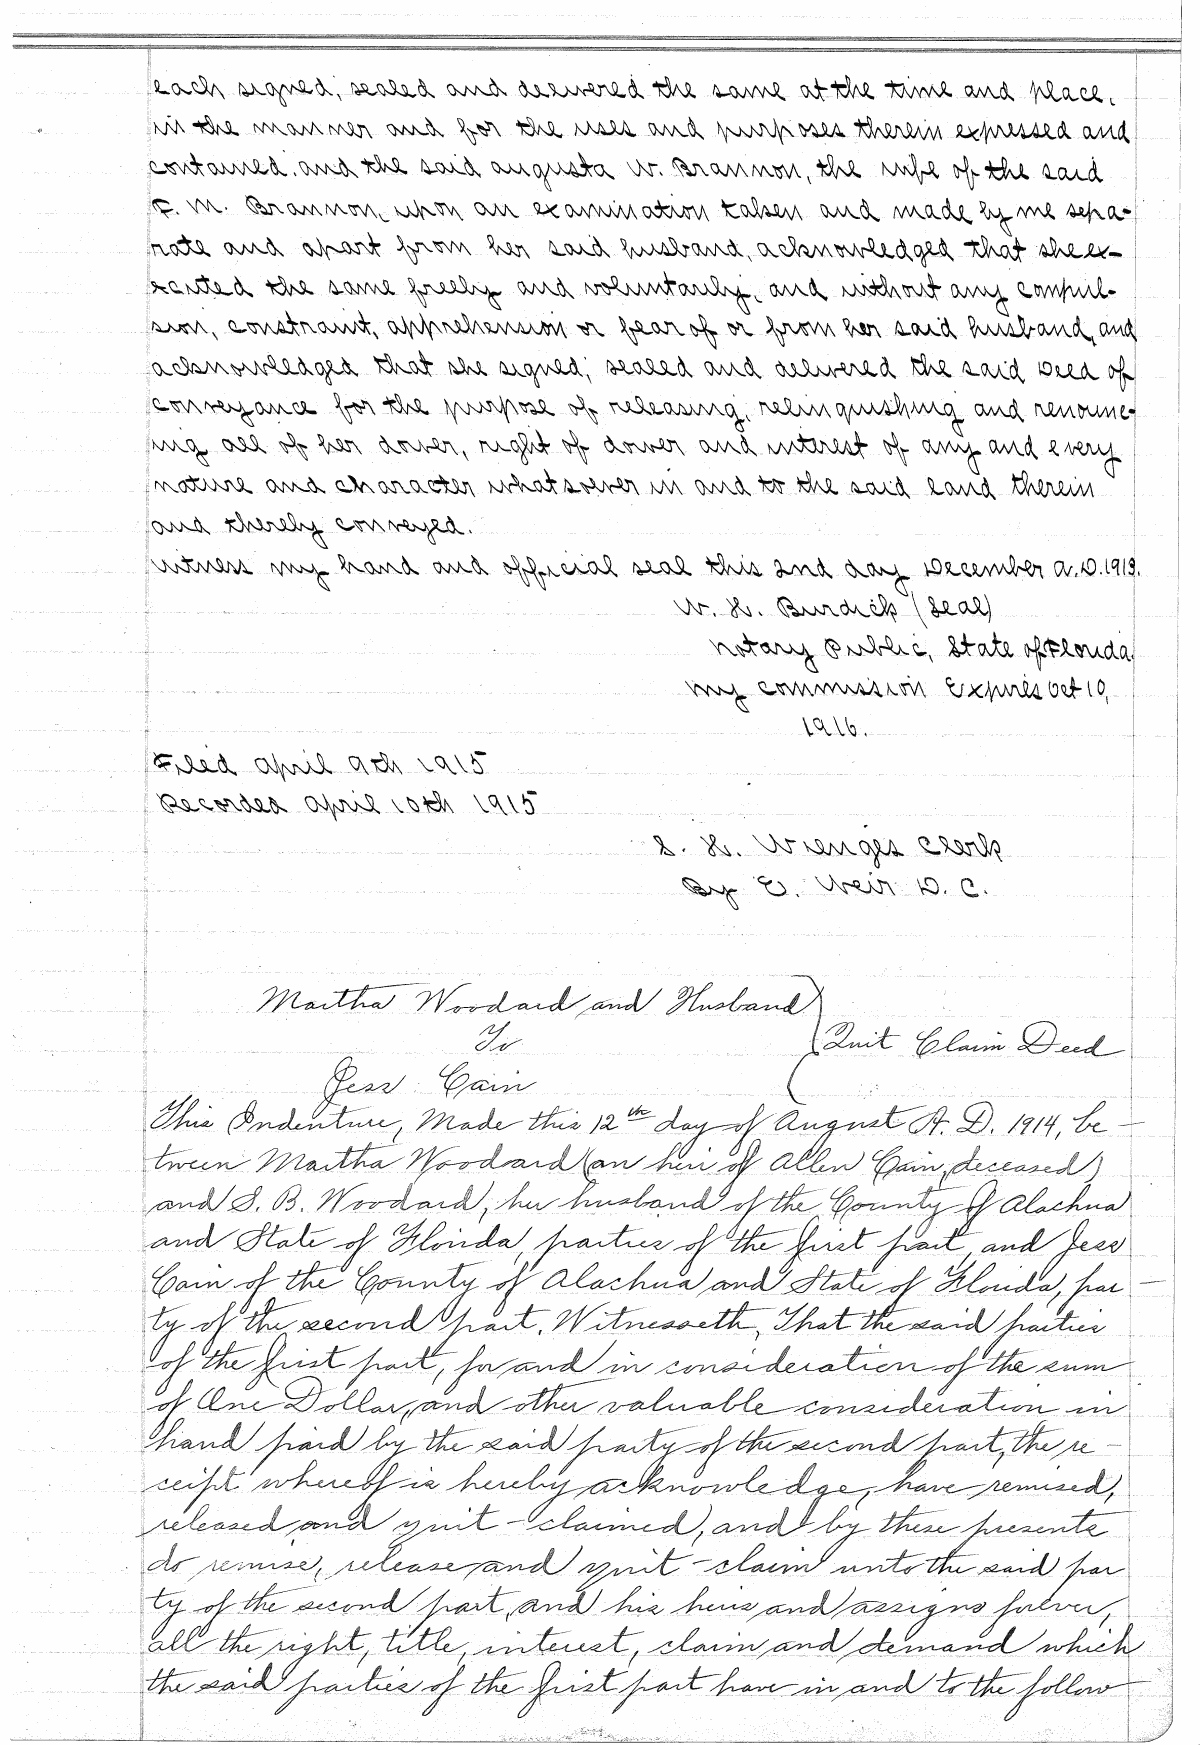 each signed, sealed and delivered the same at the time and place,
in the manner and for the uses and purposes therein expressed and
contained. and the said augusta W. Brannon, the wife of the said
F. M. Brannon, upon an examination taken and made by me sepa-
rate and apart from her said husband, acknowledged that she ex-
ecuted the same freely and voluntarily, and without any compul-
sion, constraint, apprehension or fear of or from her said husband, and
acknowledged that she signed, sealed and delivered the said Deed of
conveyance for the purpose of releasing, relinquishing and renounc-
ing all of her dower, right of dower and interest of any and every
nature and character whatsoever in and to the said land therein
and thereby conveyed.
Witness my hand and official seal this 2nd day December A.D. 1913.
W. H. Burdick (Seal)
Notary Public, State of Florida,
My commission Expires Oct 10,
1916.
Filed April 9th 1915
Recorded April 10th 1915
S. H. Wienges Clerk
By E. Weir D. C.
Martha Woodard and Husband
To
Quit Claim Deed
Jess Cain
This Indenture, Made this 12th day of August A. D. 1914, be-
tween Martha Woodard (an heir of Allen Cain, deceased)
and S. B. Woodard, her husband of the County of Alachua
and State of Florida, parties of the first part, and Jess
Cain of the County of Alachua and State of Florida, par-
ty of the second part, Witnesseth, That the said parties
of the first part, for and in consideration of the sum
of One Dollar, and other valuable consideration in
hand paid by the said party of the second part, the re-
ceipt whereof is hereby acknowledge, have remised,
released and quit-claimed, and by these presents
do remise, release and quit-claim unto the said par
ty of the second part, and his heirs and assigns forever,
all the right, title, interest, claim and demand which
the said parties of the first part have in and to the follow